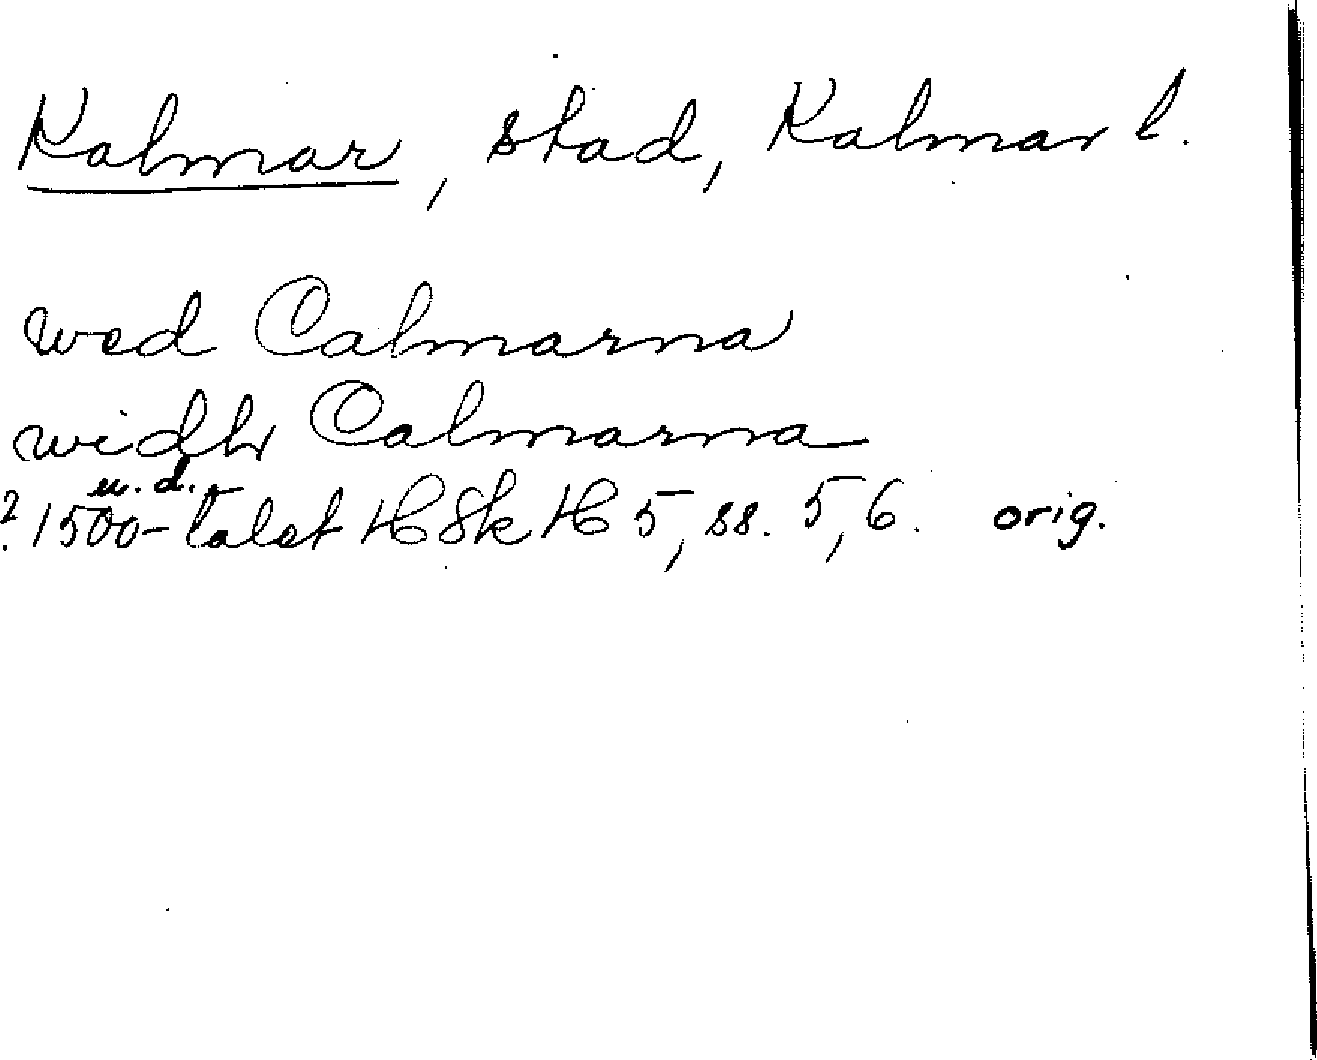 Kalmar, stad, Kalmar l.
wed Calmarna
widh Calmarna
u. d.
? 1500-talet HSkH 5, ss. 5, 6. orig.